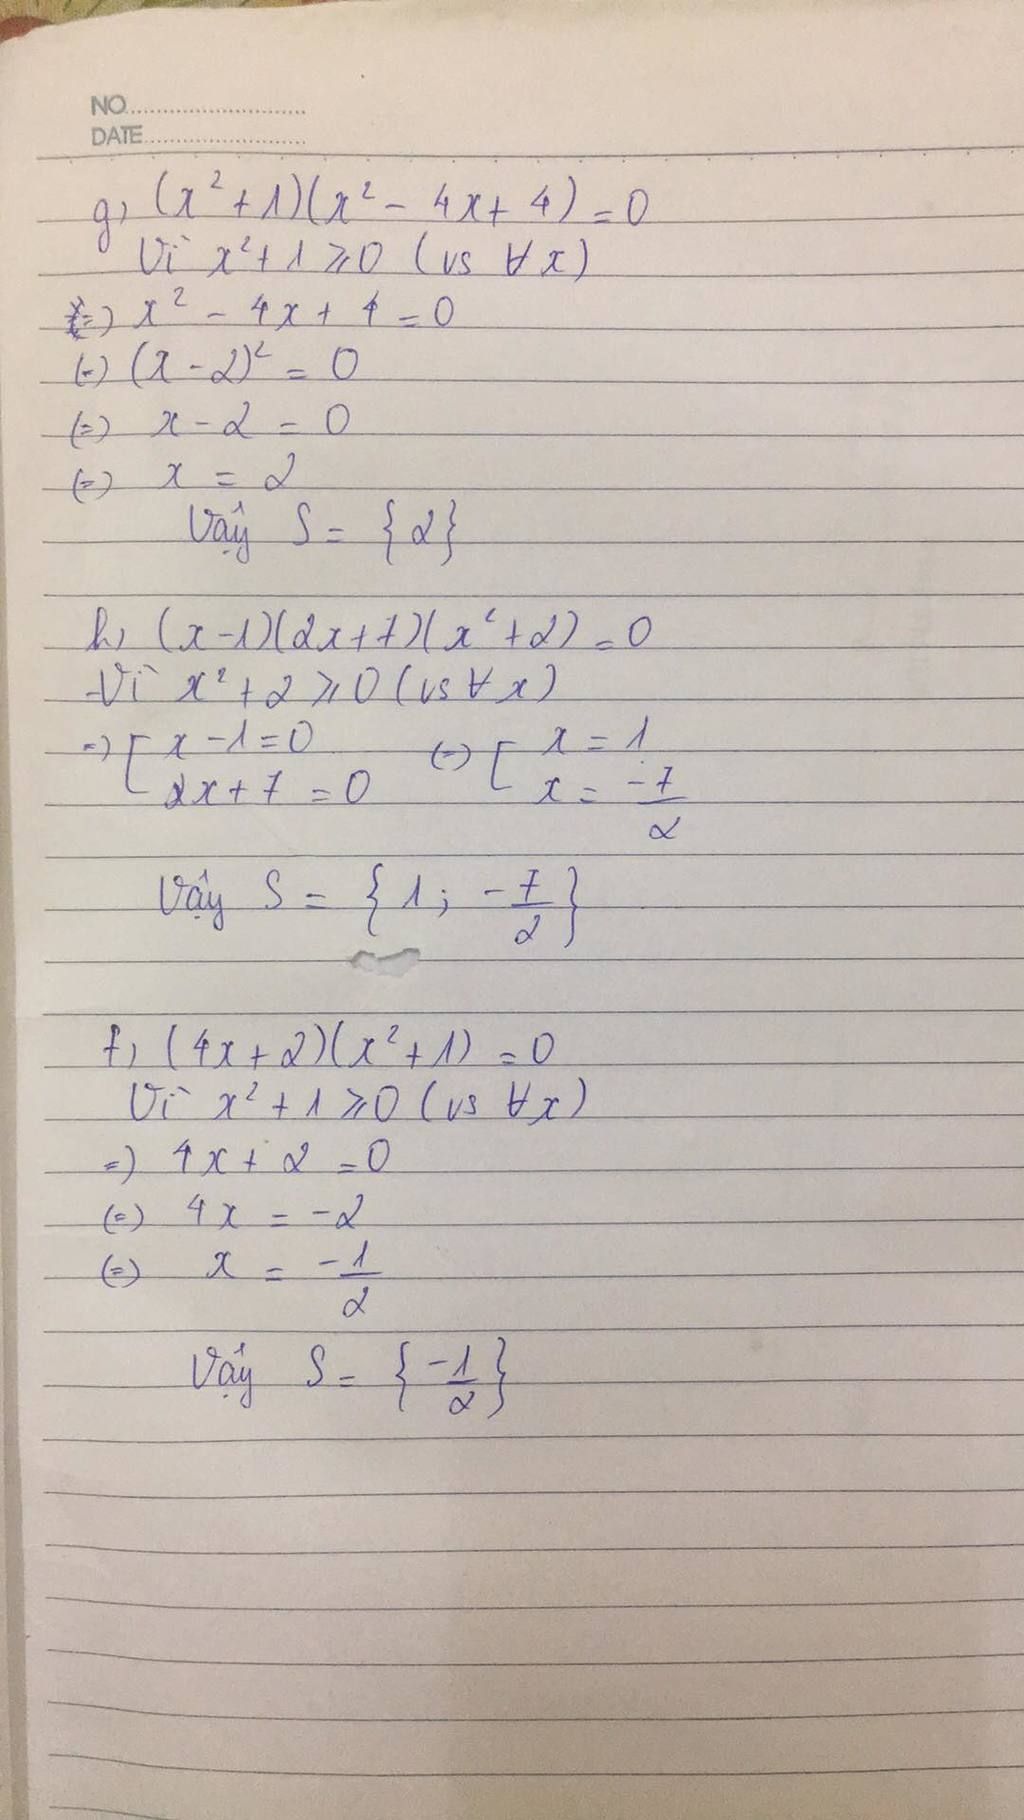 NO
DATE
g, (x² + 1)(x² - 4x + 4) = 0
Vì x² + 1 ⩾ 0 (vs ∀x)
=) x² - 4x + 4 = 0
(=) (x - 2)² = 0
(=) x - 2 = 0
(=) x = 2
Vậy S = {2}
h, (x - 1)(2x + 7)(x² + 2) = 0
-Vì x² + 2 ⩾ 0 (vs ∀x)
=) [ x - 1 = 0 (=) [ x = 1
2x + 7 = 0 x = -7/2
Vậy S = {1; -7/2}
f, (4x + 2)(x² + 1) = 0
Vì x² + 1 ⩾ 0 (vs ∀x)
=) 4x + 2 = 0
(=) 4x = -2
(=) x = -1/2
Vậy S = {-1/2}